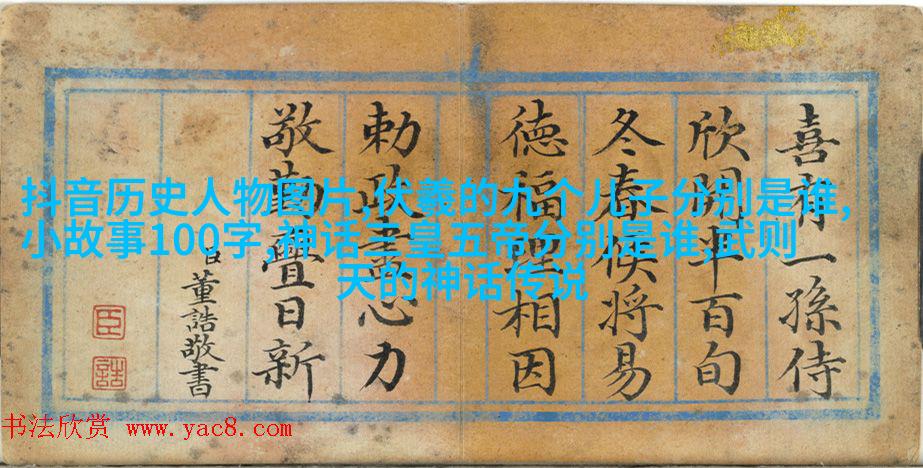 抖音历史人物图片,伏羲的九个儿子分别是谁,
小故事100字,神话三皇五帝分别是谁,武则
天的神话传说
喜有一孫侍
欣開半百旬
冬春候將易
德福理相因
勅政盡心力
敬勤疊日新
臣董誥敬書
臣
誥
书法欣赏 www.yac8.com